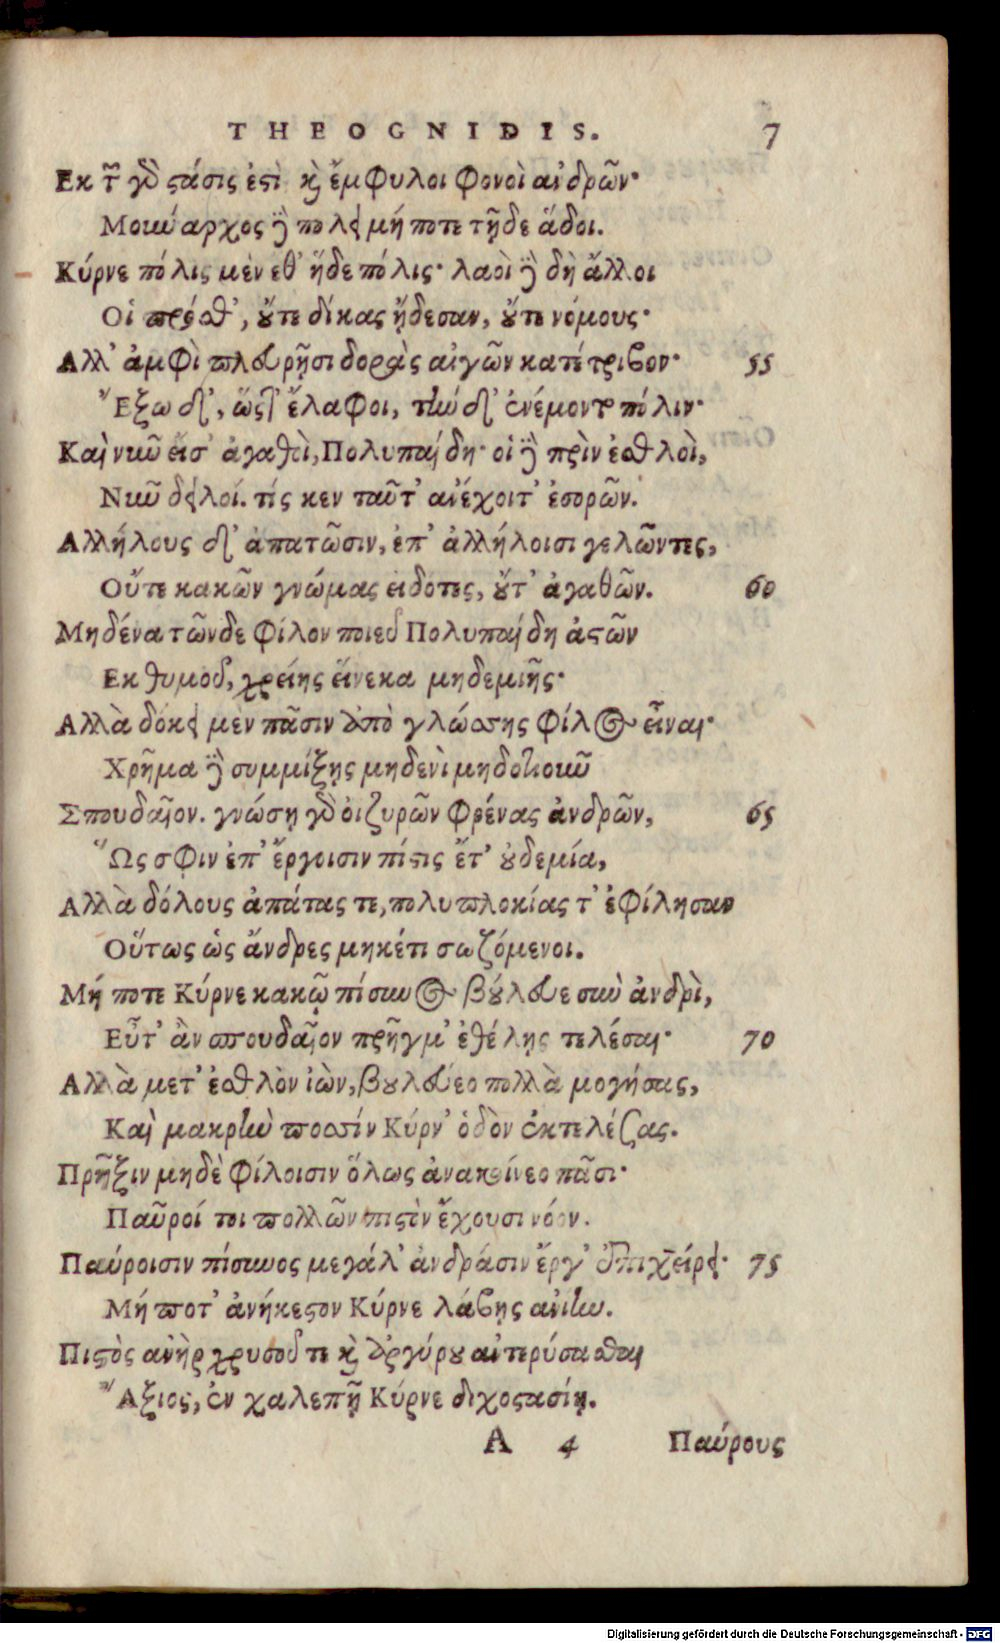 THEOGNIDIS. 7
Εκ τῶν γὸ στάσις ἐστὶ καὶ ἔμφυλοι φονοὶ ἀνδρῶν·
Μούναρχος δὲ πολει μή ποτε τῇδε ἅδοι.
Κύρνε πόλις μὲν ἐθ' ἥδε πόλις· λαοὶ δὲ δὴ ἄλλοι
Οἱ πρόσθ', οὔτε δίκας ᾔδεσαν, οὔτε νόμους·
Αλλ' ἀμφὶ πλευρῇσι δορὰς αἰγῶν κατέτριβον· 55
Ἔξω δ', ὥστ' ἔλαφοι, τήνδ' ἐνέμοντο πόλιν·
Καὶ νῦν εἴσ' ἀγαθοὶ, Πολυπαίδη· οἱ δὲ πρὶν ἐσθλοὶ,
Νῦν δειλοί. τίς κεν ταῦτ' ἀνέχοιτ' ἐσορῶν.
Αλλήλους δ' ἀπατῶσιν, ἐπ' ἀλλήλοισι γελῶντες,
Οὔτε κακῶν γνώμας εἰδοτες, οὔτ' ἀγαθῶν. 60
Μηδένα τῶνδε φίλον ποιεῦ Πολυπαίδη ἀστῶν
Εκ θυμοῦ, χρείης εἵνεκα μηδεμιῆς·
Αλλὰ δόκει μεν πᾶσιν ἀπὸ γλώσσης φίλος εἶναι·
Χρῆμα δὲ συμμίξῃς μηδενὶ μηδοτιοῦν
Σπουδαῖον. γνώσῃ γὸ ὀιζυρῶν φρένας ἀνδρῶν, 65
Ὥς σφιν ἐπ' ἔργοισιν πίστις ἔτ' οὐδεμία,
Αλλὰ δόλους ἀπάτας τε, πολυπλοκίας τ' ἐφίλησαν
Οὕτως ὡς ἄνδρες μηκέτι σωζόμενοι.
Μή ποτε Κύρνε κακῷ πίσυνος βούλευε σὺν ἀνδρὶ,
Εὖτ' ἂν σπουδαῖον πρῆγμ' ἐθέλῃς τελέσαι· 70
Αλλὰ μετ' ἐσθλὸν ἰὼν, βουλεύεο πολλὰ μογήσας,
Καὶ μακρὴν ποσσίν Κύρν' ὁδὸν ἐκτελέσας.
Πρῆξιν μηδὲ φίλοισιν ὅλως ἀνακοίνεο πᾶσι·
Παῦροί τοι πολλῶν πιστὸν ἔχουσι νόον.
Παύροισιν πίσυνος μεγάλ' ἀνδράσιν ἔργ' ἐπιχείρει· 75
Μή ποτ' ἀνήκεστον Κύρνε λάβῃς ἀνίην.
Πιστὸς ἀνὴρ χρυσοῦ τε καὶ ἀργύρου ἀντερύσασθαι
Ἄξιος, ἐν χαλεπῇ Κύρνε διχοστασίῃ.
A 4 Παύρους
Digitalisierung gefördert durch die Deutsche Forschungsgemeinschaft - DFG